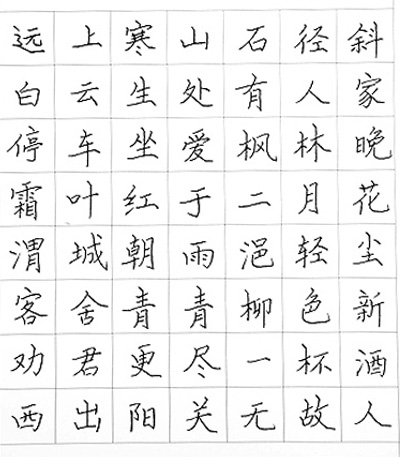 远上寒山石径斜
白云生处有人家
停车坐爱枫林晚
霜叶红于二月花
渭城朝雨浥轻尘
客舍青青柳色新
劝君更尽一杯酒
西出阳关无故人